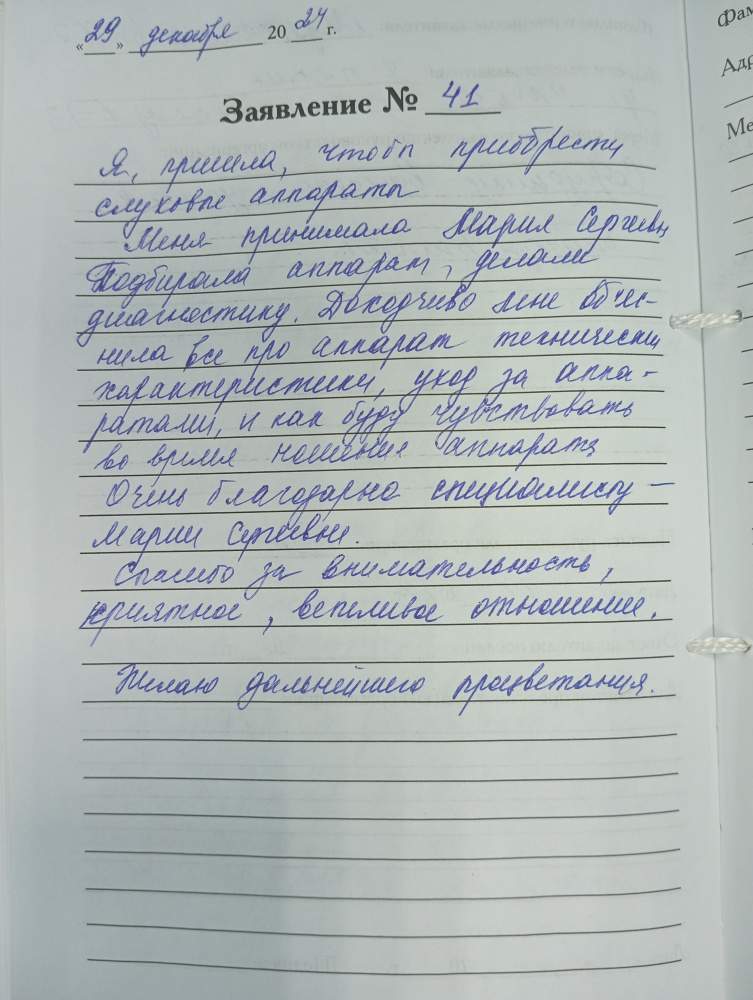 «29» декабря 2024 г.
Заявление № 41
Я, пришла, чтобы приобрести
слуховые аппараты
Меня принимала Мария Сергеевн
Подбирала аппарат, делали
диагностику. Доходчиво мне объяс-
нила все про аппарат технически
характеристики, уход за аппа-
ратами, и как буду чувствовать
во время ношение аппарата
Очень благодарна специалисту –
Марии Сергеевне.
Спасибо за внимательность,
приятное, вежливое отношение.
Желаю дальнейшего процветания.
Фам
Адр
Ме